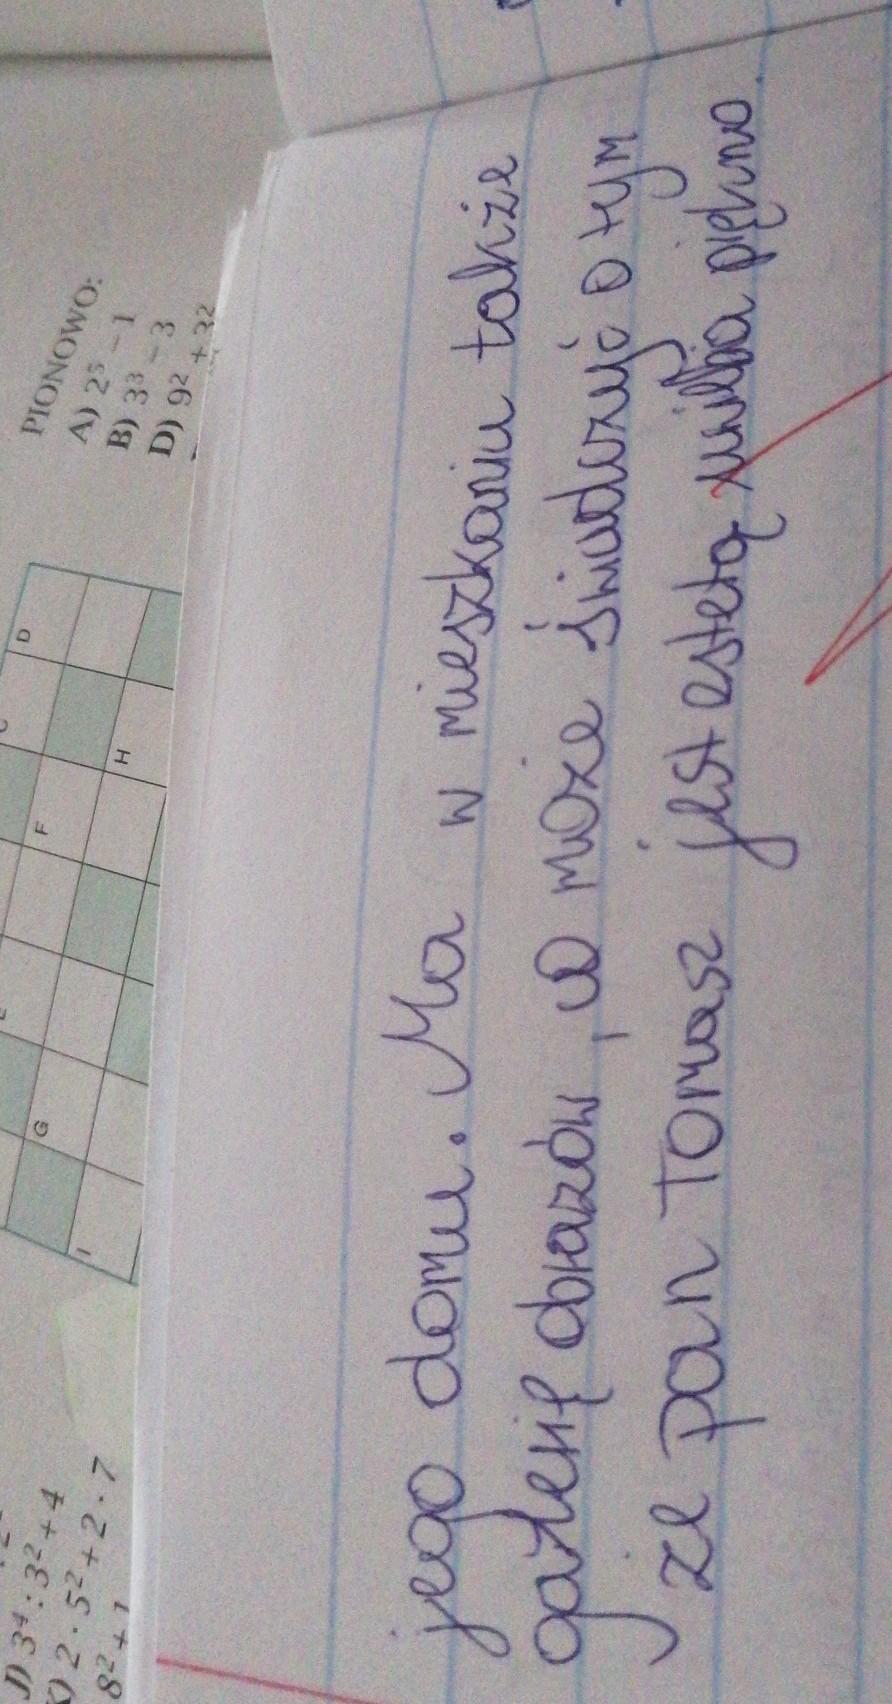 PIONOWO:
A) 2⁵ - 1
B) 3³ - 3
D) 9² + 3²
D
F
H
G
I
J) 3⁴ : 3² + 4
K) 2 · 5² + 2 · 7
8² + 1
jego domu. Ma w mieszkaniu także
galerię obrazów, co może świadczyć o tym
że pan Tomasz jest estetą, piękno